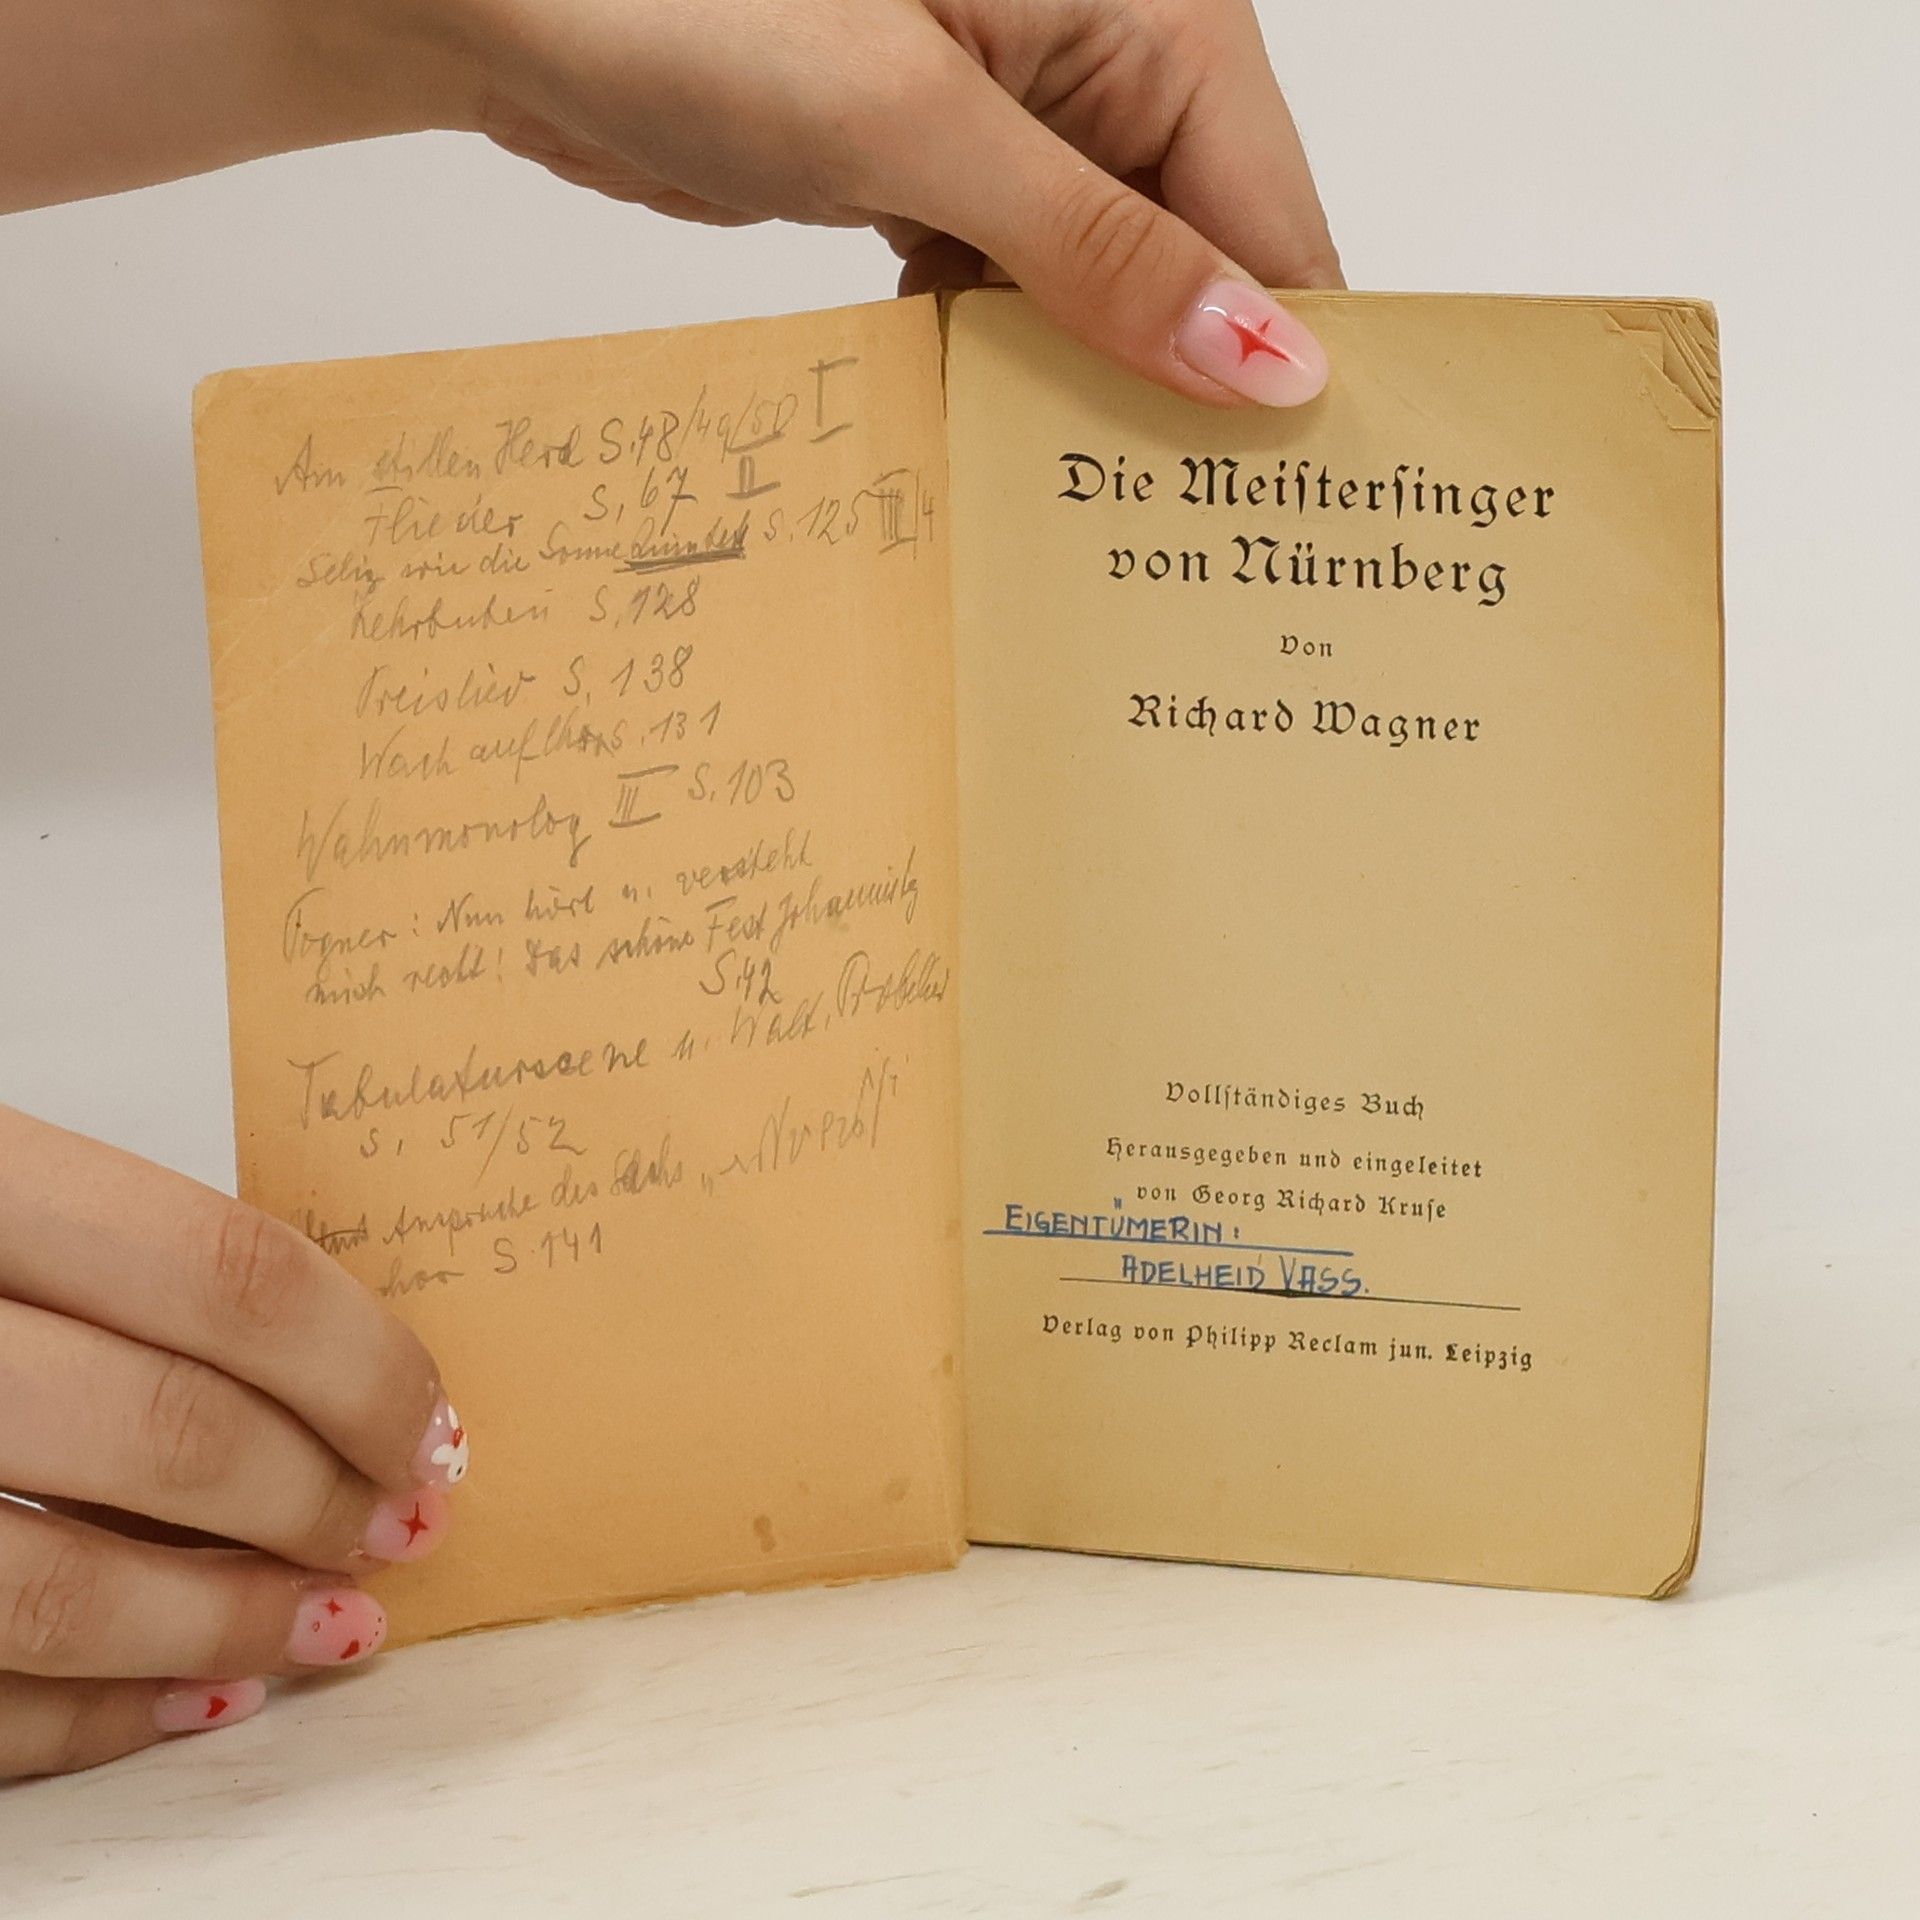 Am stillen Herd S.48/49/50 I
Flieder S. 67 II
Selig wie die Sonne Quintett S. 125 III/4
Lehrbuben S. 128
Preislied S. 138
Wach auf Chor S. 131
Wahnmonolog III S. 103
Pogner: Nun hört u. versteht
mich recht! Das schöne Fest Johannistg
S.42
Tabulaturscene u. Walt. Probelied
S. 51/52
Ansprache des Sachs
chor S 141
Die Meiſterſinger
von Nürnberg
Von
Richard Wagner
Vollſtändiges Buch
Herausgegeben und eingeleitet
von Georg Richard Kruſe
EIGENTÜMERIN:
ADELHEID VASS.
Verlag von Philipp Reclam jun. Leipzig